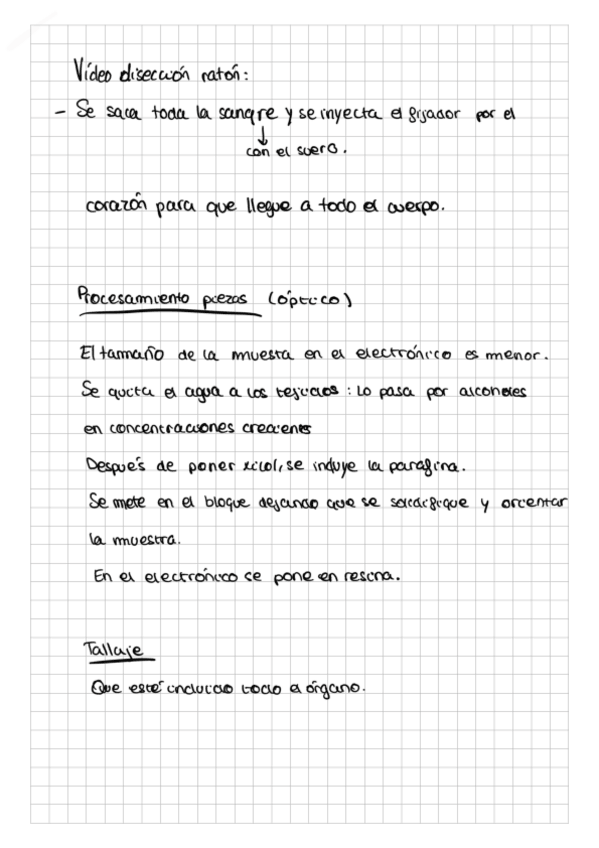 Vídeo disección ratón:
- Se saca toda la sangre y se inyecta el fijador por el
↓
con el suero.
corazón para que llegue a todo el cuerpo.
Procesamiento piezas (óptico)
El tamaño de la muesta en el electrónico es menor.
Se quita el agua a los tejidos: Lo pasa por alcoholes
en concentraciones crecienes
Después de poner xilol, se induye la parafina.
Se mete en el bloque dejando que se solidifique y orientar
la muestra.
En el electrónico se pone en resina.
Tallaje
Que esté incluido todo el órgano.